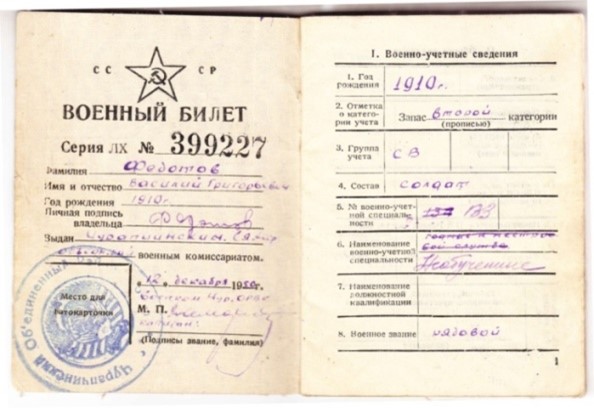 СС СР
ВОЕННЫЙ БИЛЕТ
Серия ЛХ № 399227
Фамилия Федотов
Имя и отчество Василий Григорьевич
Год рождения 1910 г.
Личная подпись
владельца
Выдан Чурапчинским
военным комиссариатом.
"12" декабря 19
Место для
фотокарточки
М. П.
(Подписы звание, фамилия)
Чурапчинский Объединенный
I. Военно-учетные сведения
1. Год
рождения 1910 г.
2. Отметка
о катего-
рии учета
Запас второй категории
(прописью)
3. Группа
учета СВ
4. Состав солдат
5. № военно-учет-
ной специаль-
ности
6. Наименование
военно-учетной
специальности
Необученные
7. Наименование
должностной
квалификации
8. Военное звание рядовой
1